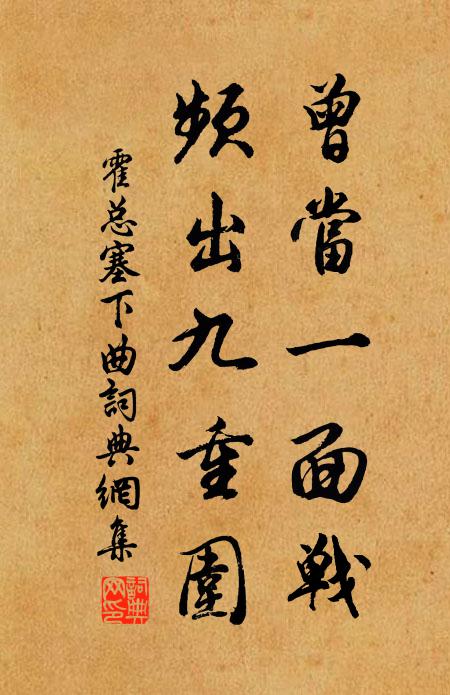 曾當一面戰
頻出九重圍
霍总塞下曲詞典網集
詞典网印